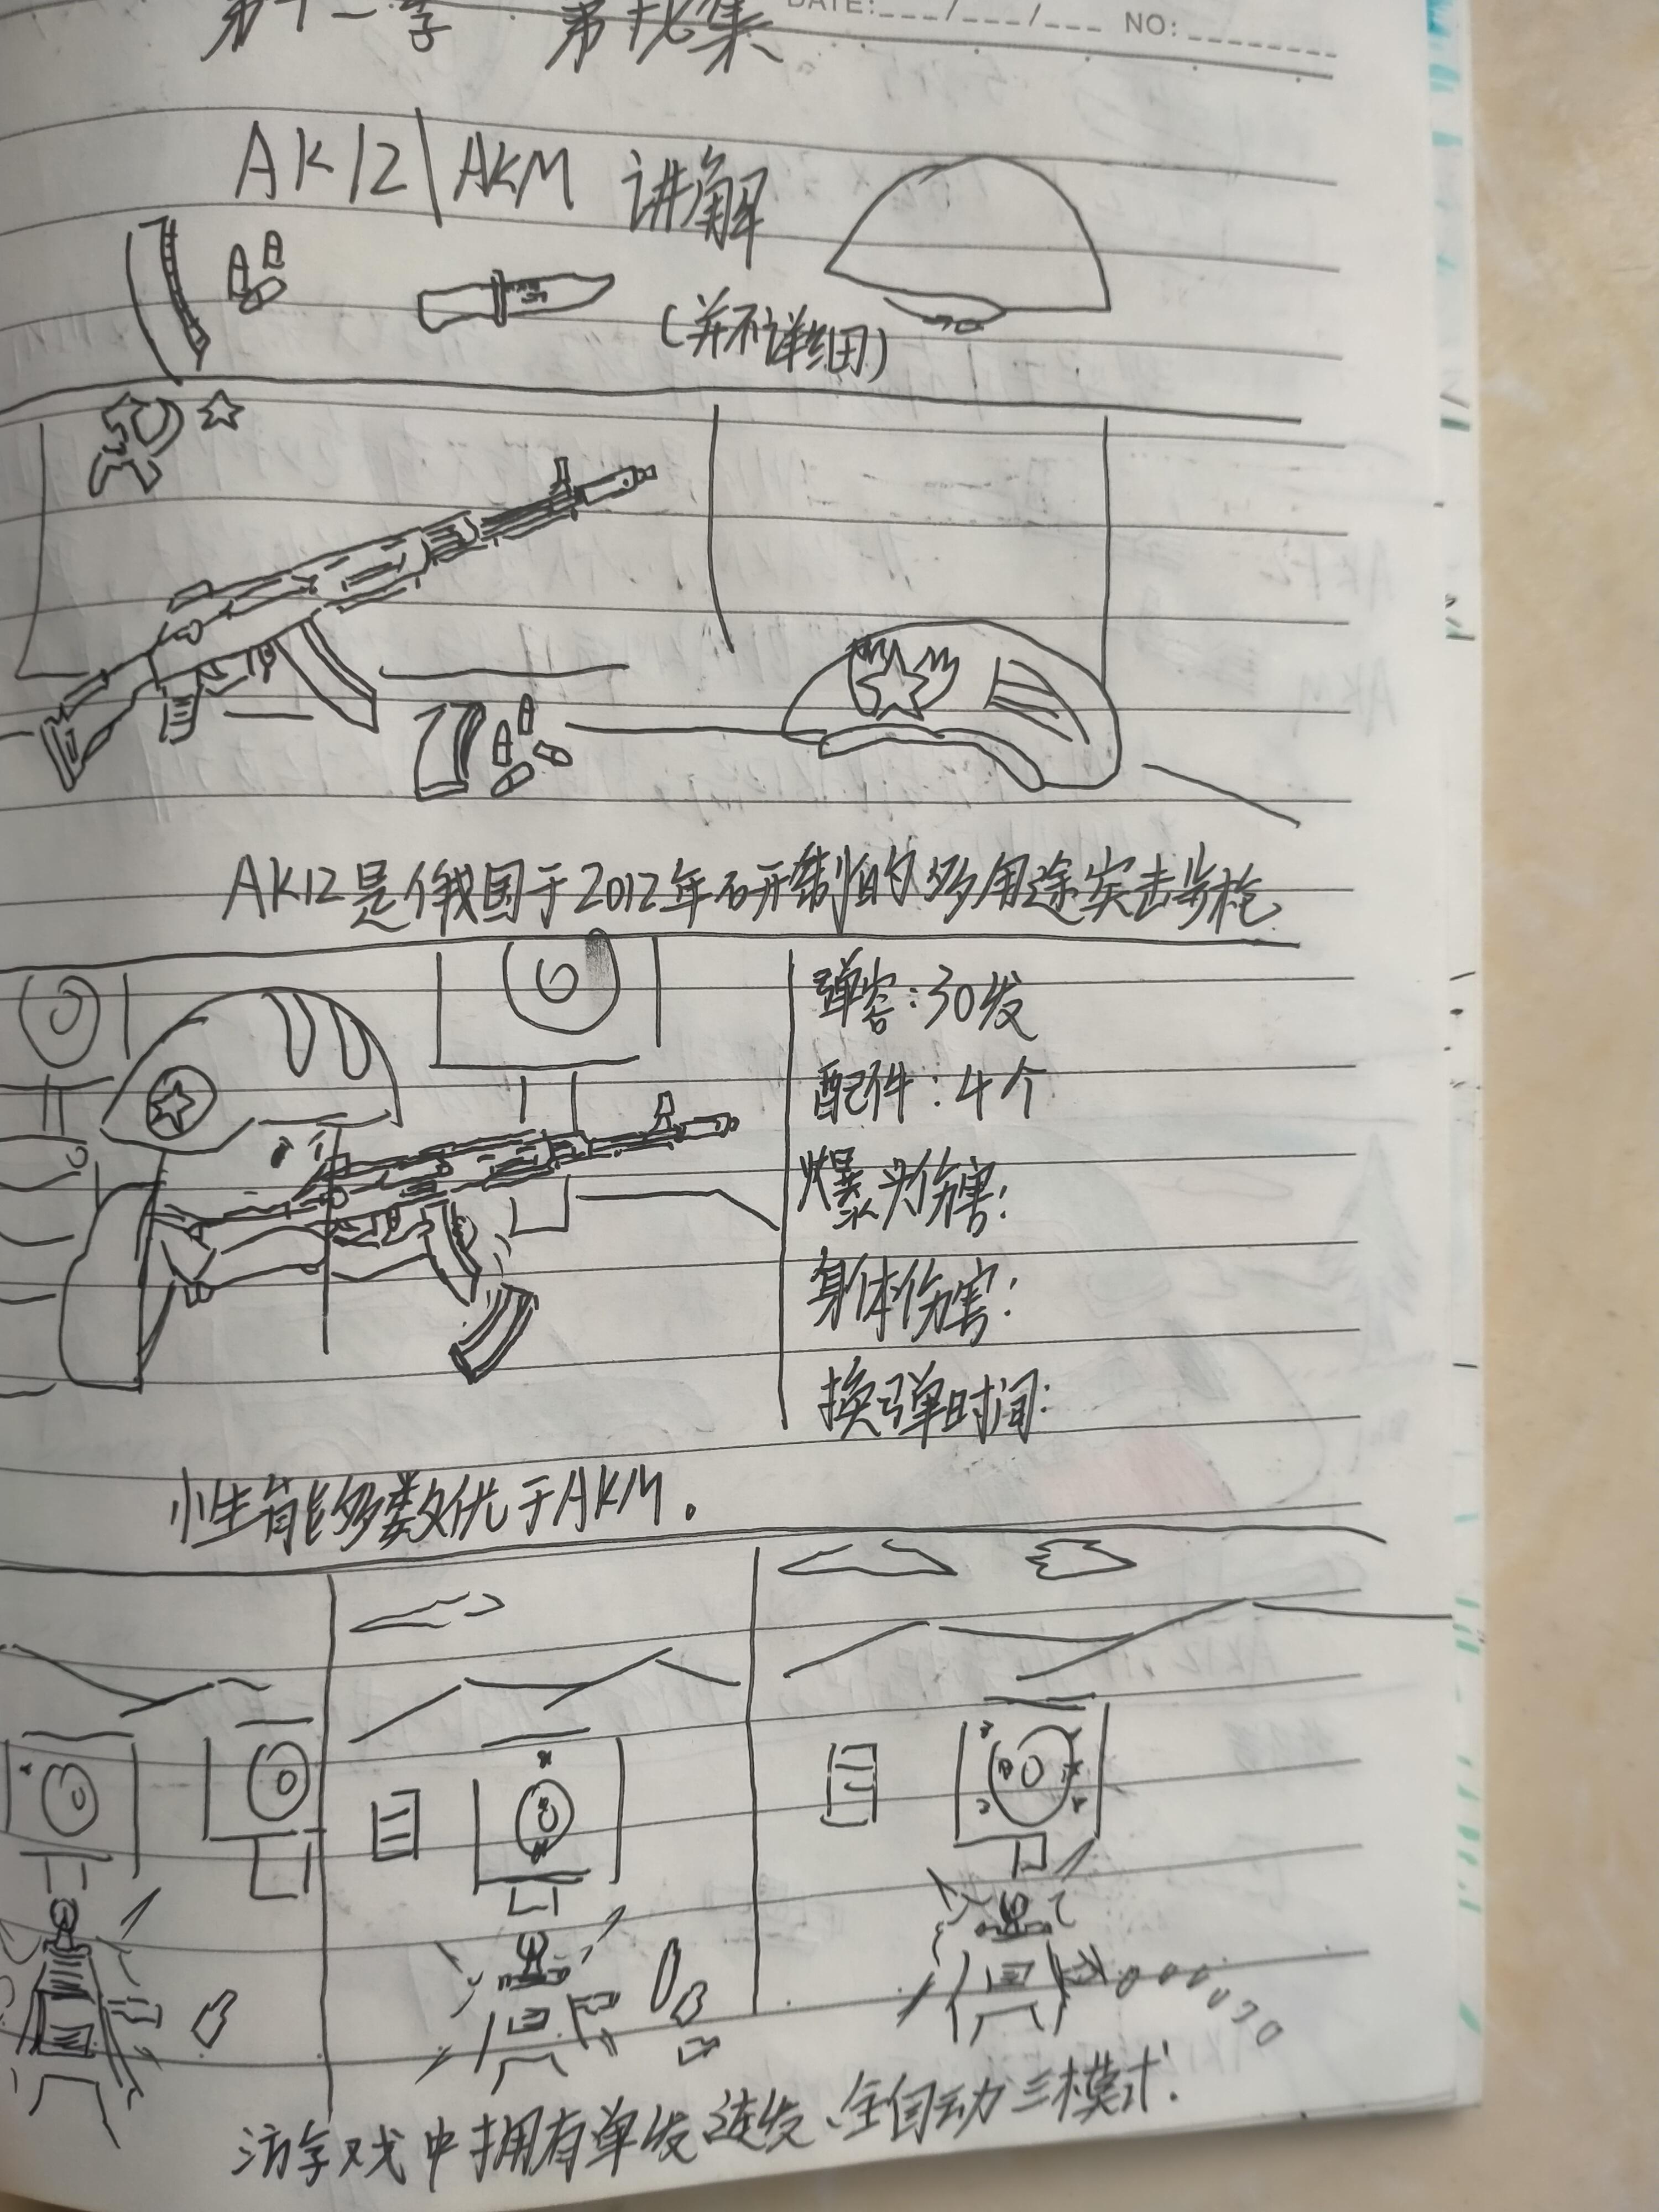 第十一季 第九集
DATE:___/___/___ NO:________
AK12\AKM 讲解
(并不详细)
AK12是俄国于2012年研制的多用途突击步枪
弹容:30发
配件:4个
爆头伤害:
身体伤害:
换弹时间:
性能多数优于AKM。
游戏中拥有单发、连发、全自动三模式.